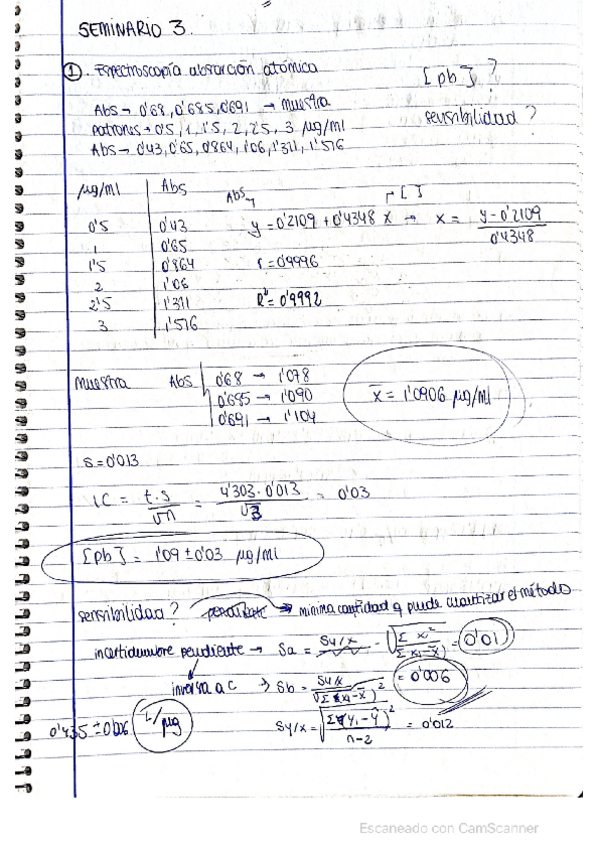 SEMINARIO 3.
① Espectroscopía absorción atómica
[pb]?
Abs → 0'68, 0'685, 0'691 → muestra
sensibilidad?
patrones → 0'5, 1, 1'5, 2, 2'5, 3 µg/ml
Abs → 0'43, 0'65, 0'864, 1'06, 1'311, 1'516
µg/ml Abs
0'5 0'43
1 0'65
1'5 0'864
2 1'06
2'5 1'311
3 1'516
Abs [ ]
y = 0'2109 + 0'4348 x → x = y - 0'2109 / 0'4348
r = 0'9996
R² = 0'9992
muestra Abs 0'68 → 1'078
0'685 → 1'090
0'691 → 1'104
x̄ = 1'0906 µg/ml
s = 0'013
IC = t.s / √n = 4'303 · 0'013 / √3 = 0'03
[Pb] = 1'09 ± 0'03 µg/ml
sensibilidad? pendiente → minima cantidad q puede cuantizar el método
incertidumbre pendiente → Sa = Sy/x √ Σ xi² / Σ xi - x̄) = 0'01
inversa a C → Sb = Sy/x / √Σ(xi - x̄)² = 0'006
0'435 ± 0'006 L/µg
Sy/x = √ Σ(yi - ŷ)² / n-2 = 0'012
Escaneado con CamScanner